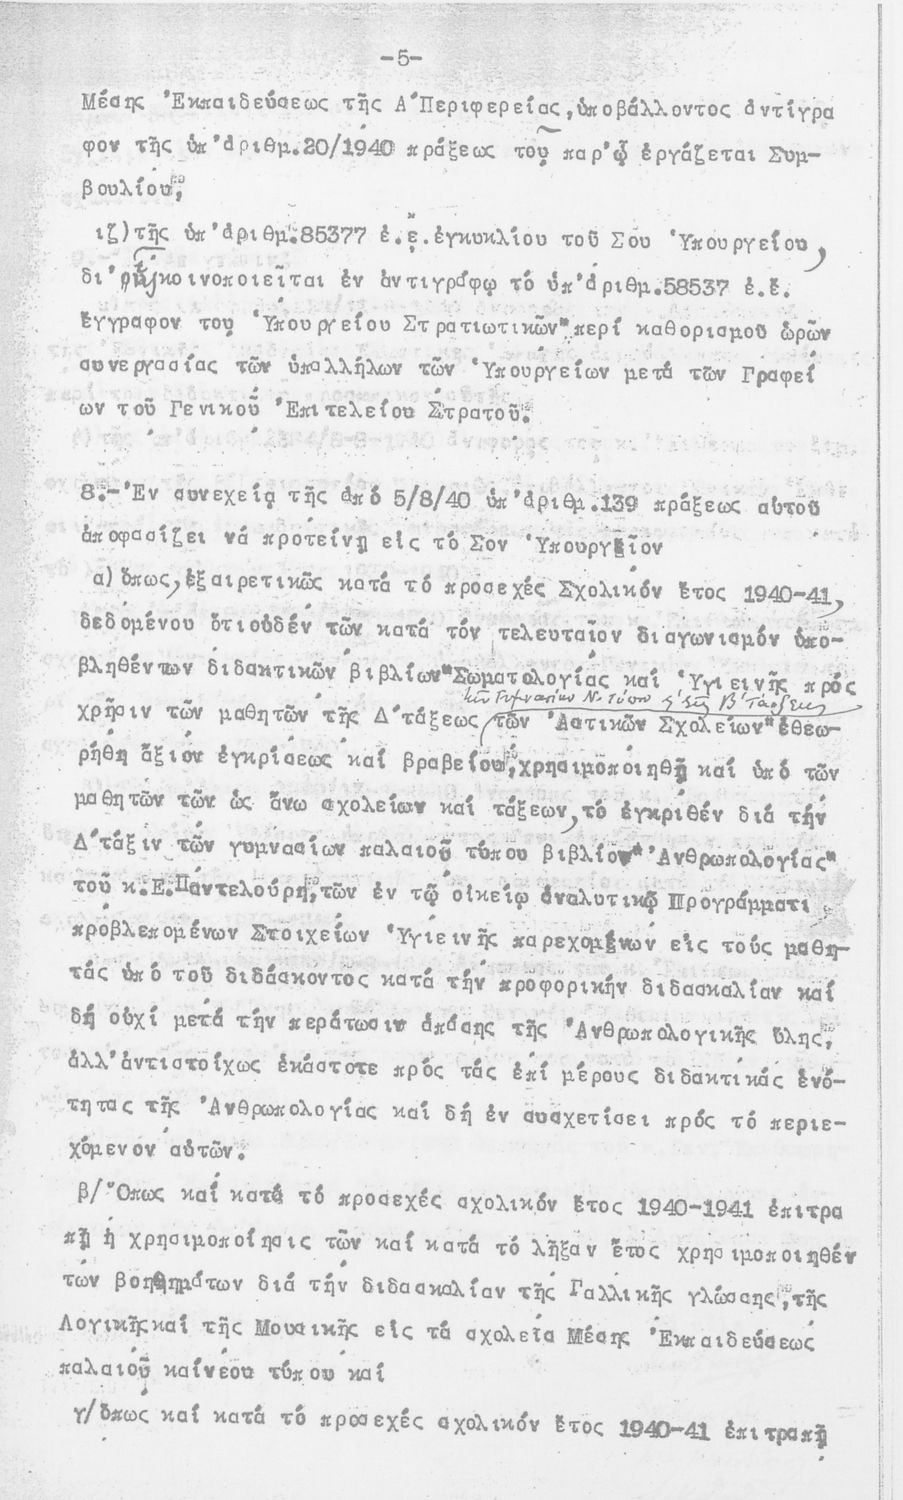 -5-
Μέσης Ἐκπαιδεύσεως τῆς Α΄Περιφερείας, ὑποβάλλοντος ἀντίγρα
φον τῆς ὑπ'ἀριθμ.20/1940 πράξεως τοῦ παρ'ᾧ ἐργάζεται Συμ-
βουλίου,
ιζ)τῆς ὑπ'ἀριθμ.85377 ἐ.ἔ.ἐγκυκλίου τοῦ Σου Ὑπουργείου,
δι'ἧς κοινοποιεῖται ἐν ἀντιγράφῳ τό ὑπ'ἀριθμ.58537 ἐ.ἔ.
ἔγγραφον του Ὑπουργείου Στρατιωτικῶν"περί καθορισμοῦ ὡρῶν
συνεργασίας τῶν ὑπαλλήλων τῶν Ὑπουργείων μετά τῶν Γραφεί
ων τοῦ Γενικοῦ Ἐπιτελείου Στρατοῦ".
8.-Ἐν συνεχείᾳ τῆς ἀπό 5/8/40 ὑπ'ἀριθμ.139 πράξεως αὐτοῦ
ἀποφασίζει νά προτείνῃ εἰς τό Σον Ὑπουργεῖον
α)ὅπως, ἐξαιρετικῶς κατά τό προσεχές Σχολικόν ἔτος 1940-41,
δεδομένου ὅτι οὐδέν τῶν κατά τόν τελευταῖον διαγωνισμόν ὑπο-
βληθέντων διδακτικῶν βιβλίων"Σωματολογίας καί Ὑγιεινῆς πρός
τῶν Γυμνασίων Ν. τύπου & τῆς Β΄Τάξεως
χρῆσιν τῶν μαθητῶν τῆς Δ΄τάξεως τῶν Ἀστικῶν Σχολείων"ἐθεω-
ρήθη ἄξιον ἐγκρίσεως καί βραβείου, χρησιμοποιηθῇ καί ὑπό τῶν
μαθητῶν τῶν ὡς ἄνω σχολείων καί τάξεων, τό ἐγκριθέν διά τήν
Δ΄τάξιν τῶν γυμνασίων παλαιοῦ τύπου βιβλίον"Ἀνθρωπολογίας"
τοῦ κ.Ε.Παντελούρη, τῶν ἐν τῷ οἰκείῳ ἀναλυτικῷ Προγράμματι
προβλεπομένων Στοιχείων Ὑγιεινῆς παρεχομένων εἰς τούς μαθη-
τάς ὑπό τοῦ διδάσκοντος κατά τήν προφορικήν διδασκαλίαν καί
δή οὐχί μετά τήν περάτωσιν ἁπάσης τῆς Ἀνθρωπολογικῆς ὕλης,
ἀλλ'ἀντιστοίχως ἑκάστοτε πρός τάς ἐπί μέρους διδακτικάς ἑνό-
τητας τῆς Ἀνθρωπολογίας καί δή ἐν συσχετίσει πρός τό περιε-
χόμενον αὐτῶν.
β/Ὅπως καί κατά τό προσεχές σχολικόν ἔτος 1940-1941 ἐπιτρα
πῇ ἡ χρησιμοποίησις τῶν καί κατά τό λῆξαν ἔτος χρησιμοποιηθέν
των βοηθημάτων διά τήν διδασκαλίαν τῆς Γαλλικῆς γλώσσης, τῆς
Λογικῆς καί τῆς Μουσικῆς εἰς τά σχολεῖα Μέσης Ἐκπαιδεύσεως
παλαιοῦ καί νέου τύπου καί
γ/ὅπως καί κατά τό προσεχές σχολικόν ἔτος 1940-41 ἐπιτραπῇ